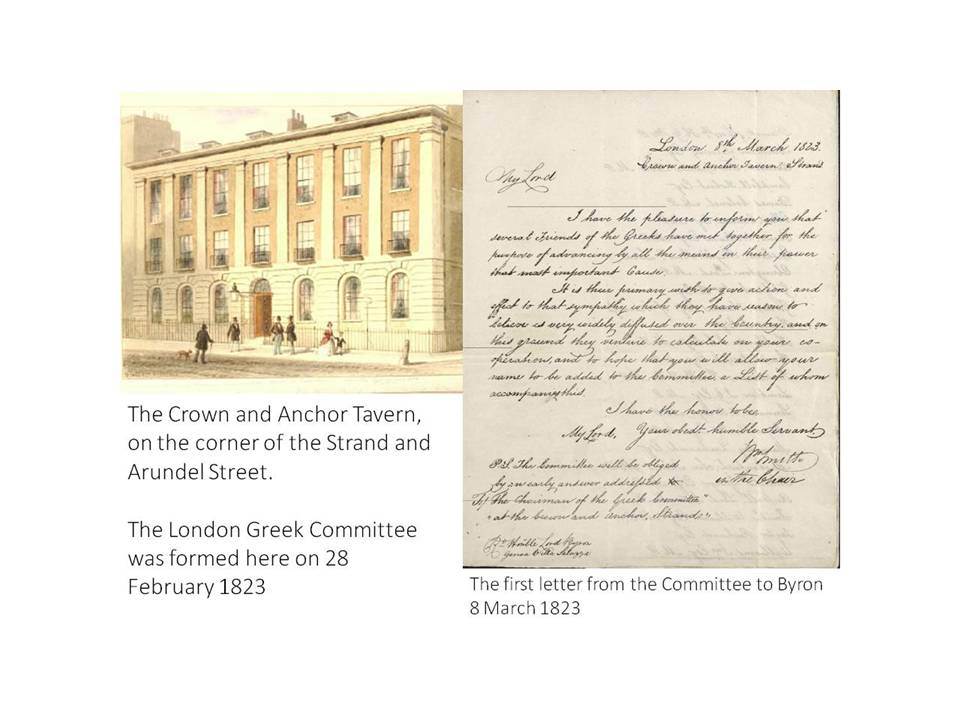 The Crown and Anchor Tavern,
on the corner of the Strand and
Arundel Street.
The London Greek Committee
was formed here on 28
February 1823
London 8th March 1823.
Crown and Anchor Tavern Strand
My Lord
I have the pleasure to inform you that
several Friends of the Greeks have met together for the
purpose of advancing by all the means in their power
that most important Cause.
It is their primary wish to give action and
effect to that sympathy which they have reason to
believe is very widely diffused over the Country, and on
this ground they venture to calculate on your co-
operation, and to hope that you will allow your
name to be added to the Committee, a List of whom
accompanies this.
I have the honor to be,
My Lord, Your obedt. humble Servant
Wm Smith
in the Chair
P.S. The Committee will be obliged
by an early answer addressed
"The Chairman of the Greek Committee"
"at the Crown and Anchor, Strand"
Rt. Honble Lord Byron
Genoa
The first letter from the Committee to Byron
8 March 1823